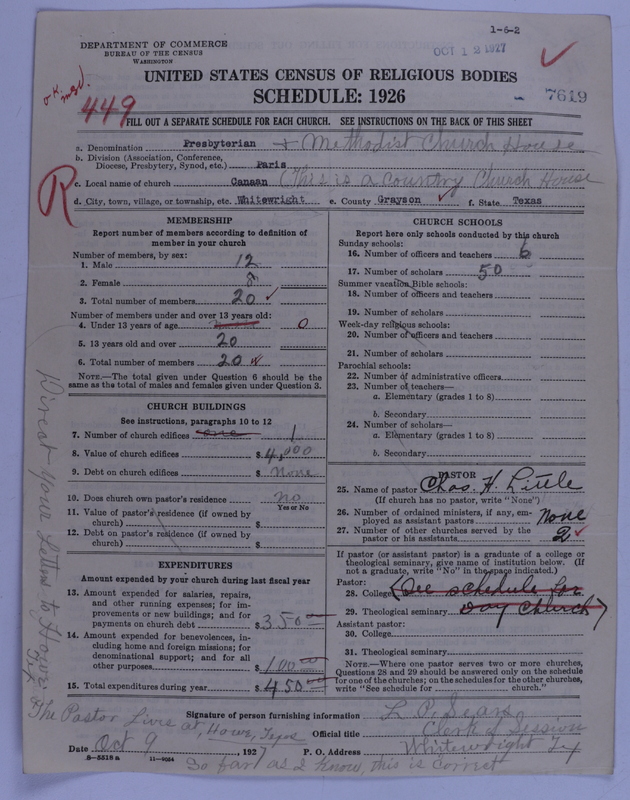 1-6-2
DEPARTMENT OF COMMERCE
BUREAU OF THE CENSUS
WASHINGTON
OCT 12 1927
UNITED STATES CENSUS OF RELIGIOUS BODIES
SCHEDULE: 1926
7619
O.K.
449
FILL OUT A SEPARATE SCHEDULE FOR EACH CHURCH. SEE INSTRUCTIONS ON THE BACK OF THIS SHEET
a. Denomination Presbyterian & Methodist Church House
b. Division (Association, Conference,
Diocese, Presbytery, Synod, etc.) Paris
R
c. Local name of church Canaan (This is a country Church House
d. City, town, village, or township, etc. Whitewright e. County Grayson f. State Texas
MEMBERSHIP
Report number of members according to definition of
member in your church
Number of members, by sex:
1. Male 12
2. Female 8
3. Total number of members 20
Number of members under and over 13 years old:
4. Under 13 years of age 0
5. 13 years old and over 20
6. Total number of members 20
NOTE.—The total given under Question 6 should be the
same as the total of males and females given under Question 3.
CHURCH BUILDINGS
See instructions, paragraphs 10 to 12
7. Number of church edifices one 1
8. Value of church edifices $ 4,000
9. Debt on church edifices $ None
10. Does church own pastor's residence no
Yes or No
11. Value of pastor's residence (if owned by
church) $
12. Debt on pastor's residence (if owned by
church) $
EXPENDITURES
Amount expended by your church during last fiscal year
13. Amount expended for salaries, repairs,
and other running expenses; for im-
provements or new buildings; and for
payments on church debt $ 350 00
14. Amount expended for benevolences, in-
cluding home and foreign missions; for
denominational support; and for all
other purposes $ 100 00
15. Total expenditures during year $ 450
CHURCH SCHOOLS
Report here only schools conducted by this church
Sunday schools:
16. Number of officers and teachers 6
17. Number of scholars 50
Summer vacation Bible schools:
18. Number of officers and teachers
19. Number of scholars
Week-day religious schools:
20. Number of officers and teachers
21. Number of scholars
Parochial schools:
22. Number of administrative officers
23. Number of teachers—
a. Elementary (grades 1 to 8)
b. Secondary
24. Number of scholars—
a. Elementary (grades 1 to 8)
b. Secondary
PASTOR
25. Name of pastor Chas. H. Little
(If church has no pastor, write "None")
26. Number of ordained ministers, if any, em-
ployed as assistant pastors None
27. Number of other churches served by the
pastor or his assistants 2
If pastor (or assistant pastor) is a graduate of a college or
theological seminary, give name of institution below. (If
not a graduate, write "No" in the space indicated.)
Pastor:
28. College (See schedule for
29. Theological seminary Day Church)
Assistant pastor:
30. College
31. Theological seminary
NOTE.—Where one pastor serves two or more churches,
Questions 28 and 29 should be answered only on the schedule
for one of the churches; on the schedules for the other churches,
write "See schedule for church."
Direct your Letters to Howe, Tex.
The Pastor Lives at, Howe, Texas
Signature of person furnishing information L. P. Sears
Official title Clerk of Session
Date Oct 9, 1927 P. O. Address Whitewright Tex
8-5518 a 11-9034
So far as I know, this is correct